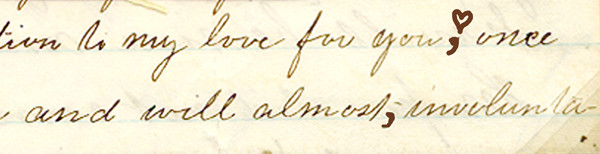 tion to my love for you; once
and will almost, involunta-